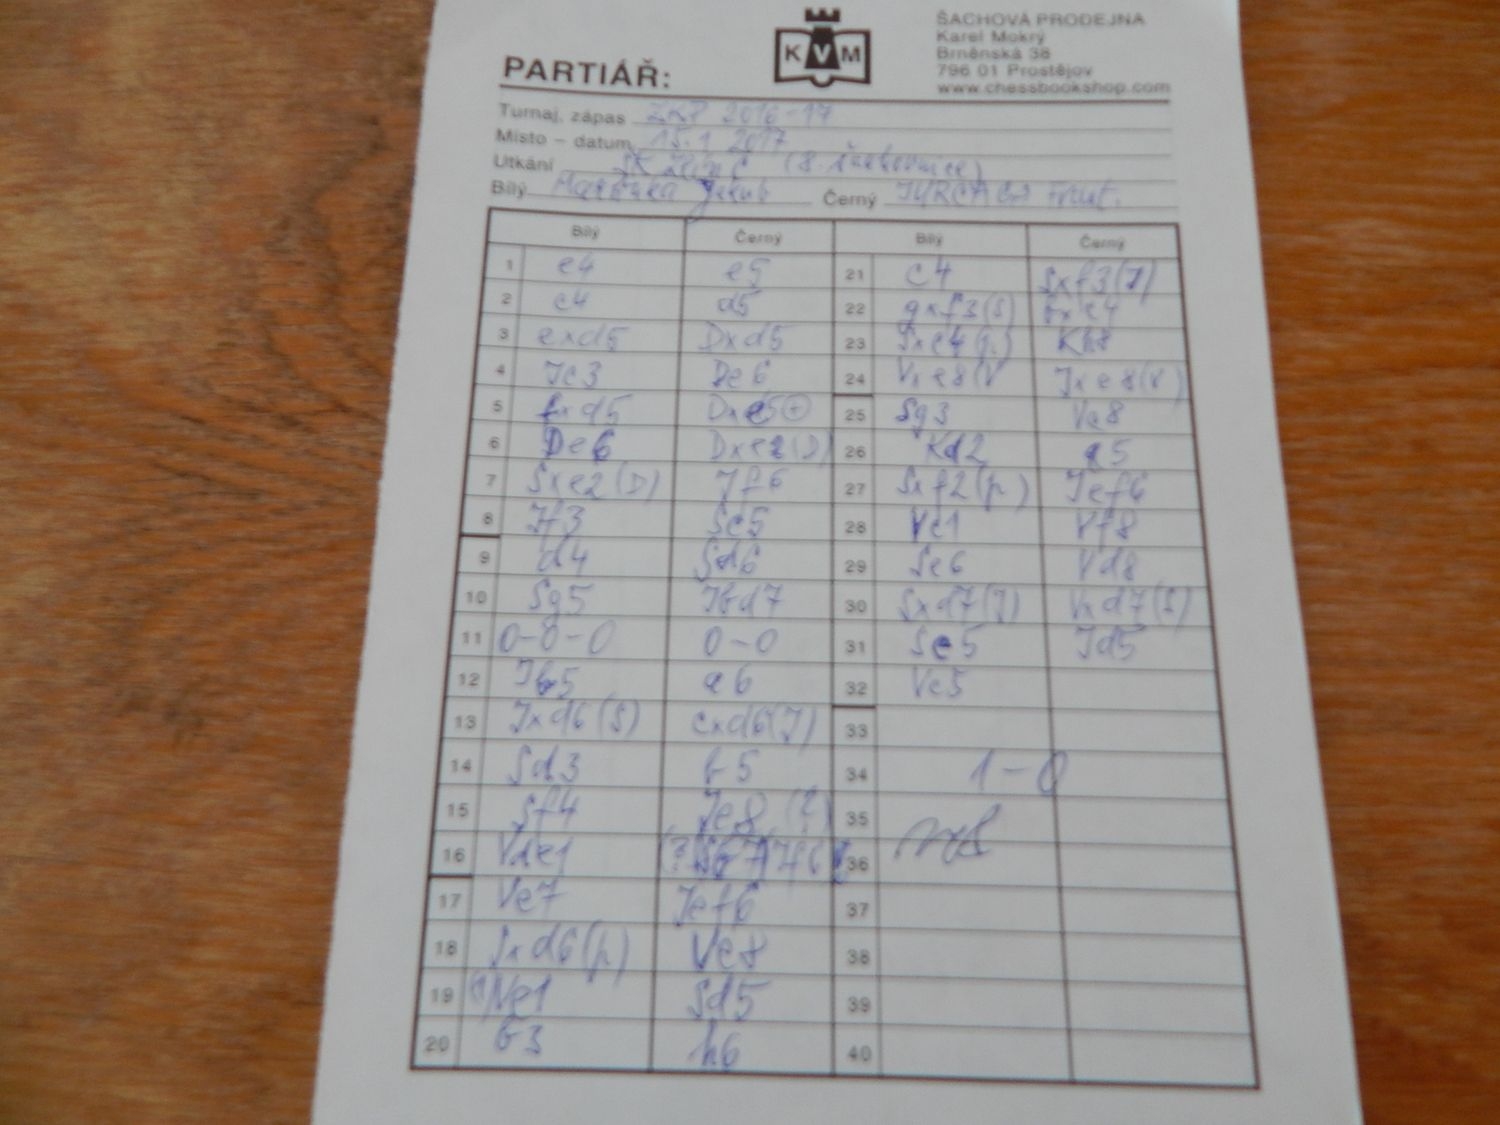 ŠACHOVÁ PRODEJNA
Karel Mokrý
Brněnská 38
796 01 Prostějov
www.chessbookshop.com
KVM
PARTIÁŘ:
Turnaj, zápas 2016-17
Místo – datum 15.1 2017
Utkání
Bílý Jakub Černý
Bílý Černý Bílý Černý
1 e4 e5 21 c4 Sxf3(J)
2 c4 d5 22 gxf3(S) bxc4
3 exd5 Dxd5 23 Kh8
4 Jc3 De6 24 Jxe8(V)
5 fxd5 Dxe5+ 25 Sg3 Vc8
6 De6 Dxe2(D) 26 Kd2 a5
7 Sxe2(D) Jf6 27 Sxf2(p) Jef6
8 Jf3 Sc5 28 Vc1 Vf8
9 d4 Sd6 29 Sc6 Vd8
10 Sg5 Jbd7 30 Sxd7(J) Vxd7(S)
11 0-0-0 0-0 31 Se5 Jd5
12 Jb5 a6 32 Vc5
13 Jxd6(S) cxd6(J) 33
14 Sd3 b5 34 1-0
15 Sf4 Je8 35
16 Vde1 36
17 Ve7 Jef6 37
18 Sxd6(p) Ve8 38
19 Sd5 39
20 b3 h6 40